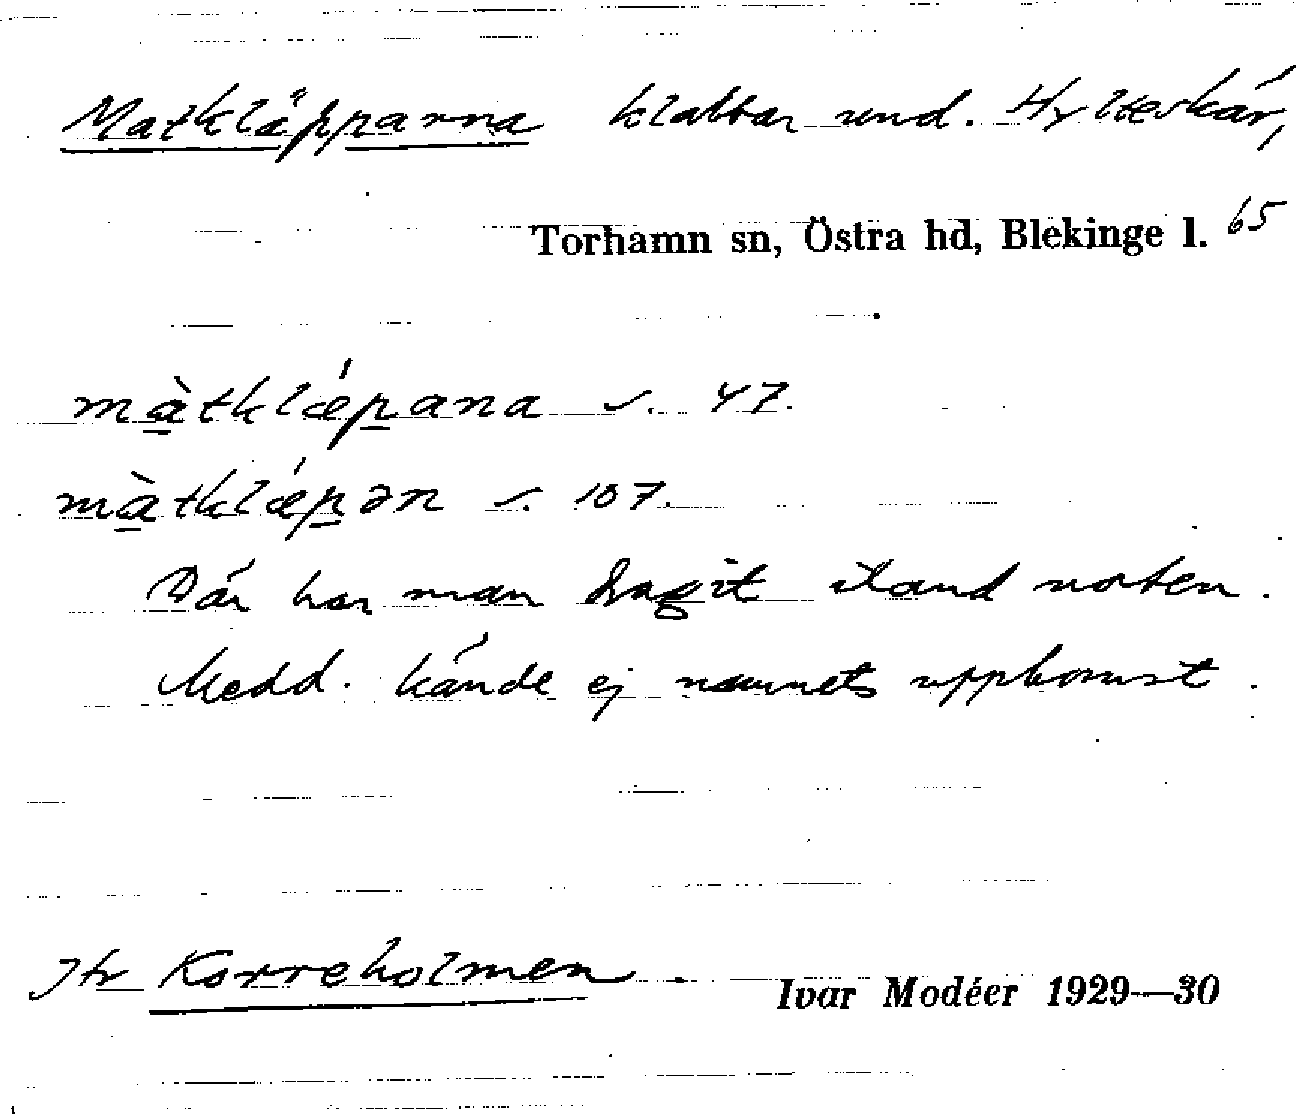 Matkläpparna klabbar und. Hylteskär,
Torhamn sn, Östra hd, Blekinge l. 65
màtklǽpana s. 47.
màtklǽpən s. 107.
Där har man dragit iland noten.
Medd. kände ej namnets uppkomst.
Jfr Korreholmen.
Ivar Modéer 1929—30